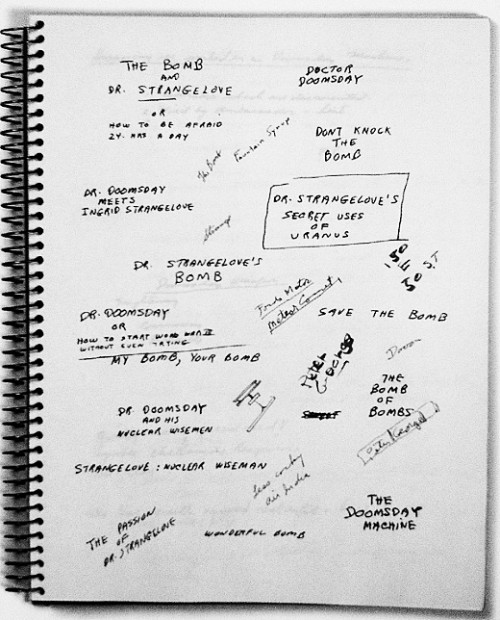 THE BOMB
AND
DR. STRANGELOVE
OR
HOW TO BE AFRAID
24 HRS A DAY
DOCTOR
DOOMSDAY
DONT KNOCK
THE
BOMB
DR. DOOMSDAY
MEETS
INGRID STRANGELOVE
DR. STRANGELOVE'S
SECRET USES
OF
URANUS
DR. STRANGELOVE'S
BOMB
150
E
50 ST
DR. DOOMSDAY
OR
HOW TO START WORLD WAR III
WITHOUT EVEN TRYING
SAVE THE BOMB
MY BOMB, YOUR BOMB
PETER
THE
BOMB
OF
BOMBS
DR. DOOMSDAY
AND HIS
NUCLEAR WISEMEN
STRANGELOVE: NUCLEAR WISEMAN
air India
THE PASSION
OF
DR. STRANGELOVE
WONDERFUL BOMB
THE
DOOMSDAY
MACHINE